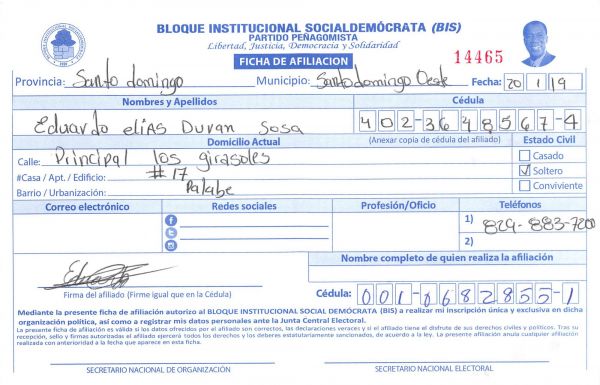 BLOQUE INSTITUCIONAL SOCIALDEMÓCRATA (BIS)
PARTIDO PEÑAGOMISTA
Libertad, Justicia, Democracia y Solidaridad
FICHA DE AFILIACION
14465
Provincia: Santo domingo Municipio: Santo domingo Oeste Fecha: 20 1 19
Nombres y Apellidos Cédula
Eduardo elias Duran Sosa 402-3648567-4
Domicilio Actual (Anexar copia de cédula del afiliado) Estado Civil
Calle: Principal los girasoles Casado
#Casa / Apt. / Edificio: #17 Soltero
Barrio / Urbanización: Palabe Conviviente
Correo electrónico Redes sociales Profesión/Oficio Teléfonos
1) 829-883-7200
2)
Nombre completo de quien realiza la afiliación
Firma del afiliado (Firme igual que en la Cédula) Cédula: 001-0682855-1
Mediante la presente ficha de afiliación autorizo al BLOQUE INSTITUCIONAL SOCIAL DEMÓCRATA (BIS) a realizar mi inscripción única y exclusiva en dicha
organización política, así como a registrar mis datos personales ante la Junta Central Electoral.
La presente ficha de afiliación es válida si los datos ofrecidos por el afiliado son correctos, las declaraciones veraces y si el afiliado tiene el disfrute de sus derechos civiles y políticos. Tras su
recepción, sello y firmas autorizadas el afiliado ejercerá todos los derechos y los deberes estatutariamente sancionados, de acuerdo a la ley. La presente afiliación anula cualquier afiliación
realizada con anterioridad a la fecha que aparece en esta ficha.
SECRETARIO NACIONAL DE ORGANIZACIÓN SECRETARIO NACIONAL ELECTORAL